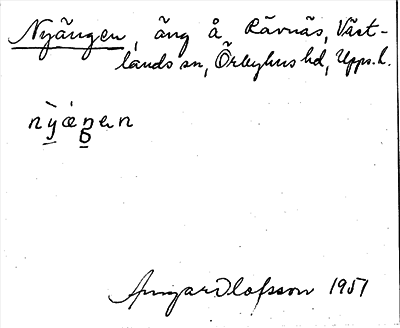 Nyängen, äng å Rävnäs, Väst-
lands sn, Örbyhus hd, Upps. l.
nỳæ̀ŋen
Ansgar Olofsson 1951